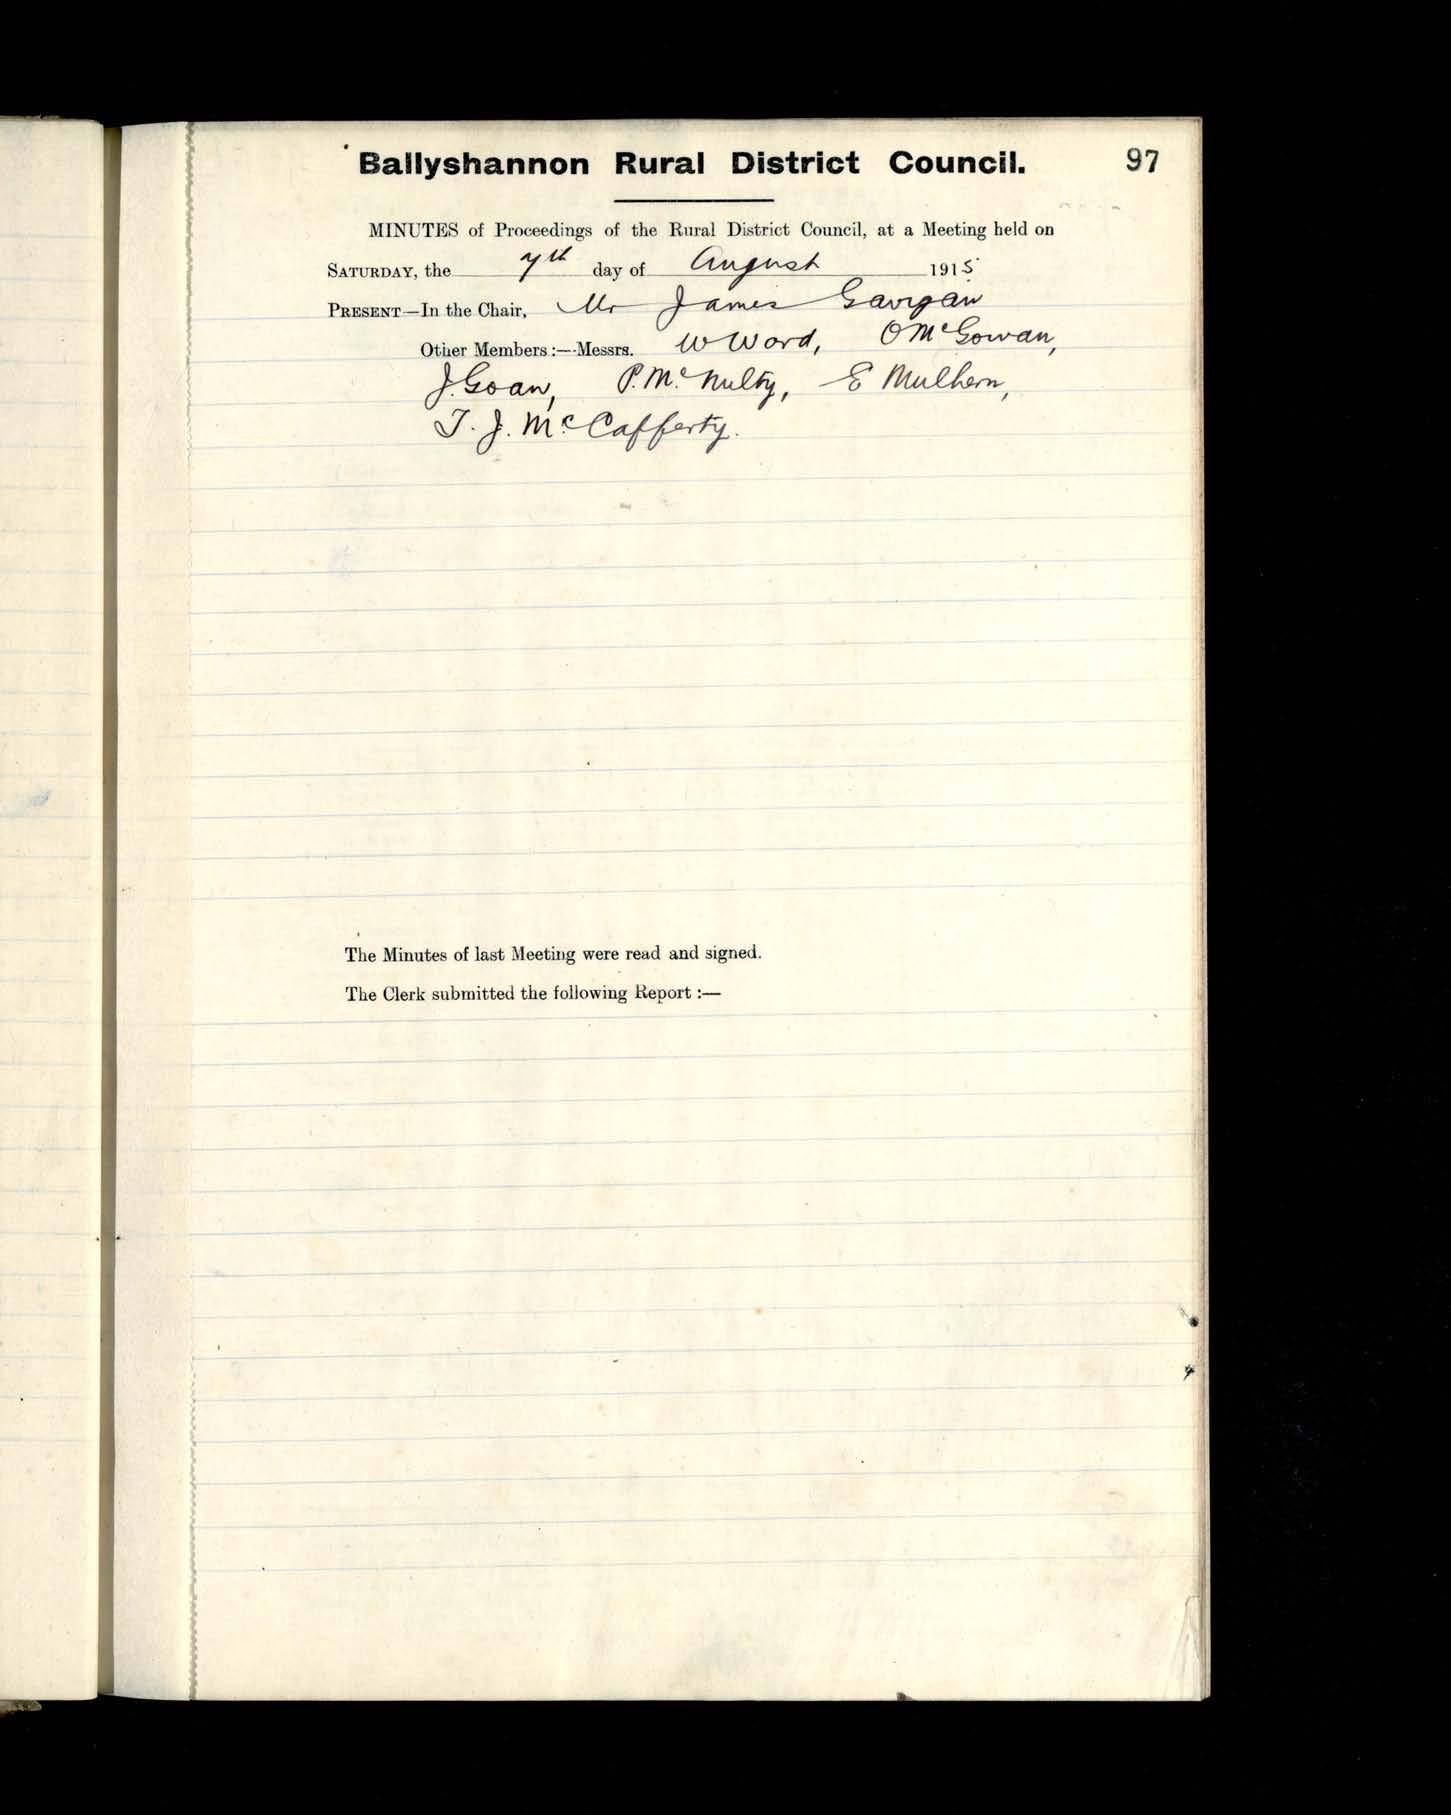 Ballyshannon Rural District Council. 97
MINUTES of Proceedings of the Rural District Council, at a Meeting held on
SATURDAY, the 7th day of August 1915
PRESENT—In the Chair, Mr James Gavigan
Other Members :—Messrs. W Ward, O McGowan,
J. Goan, P. McNulty, E Mulhern,
T. J. McCafferty.
The Minutes of last Meeting were read and signed.
The Clerk submitted the following Report :—